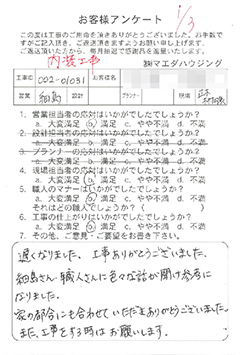 お客様アンケート
1/3
この度は工事のご用命を頂きありがとうございました。お手数で
すがご記入頂き、ご返送頂きますようお願い申し上げます。
ご返送頂いた方から、毎月抽選で感謝品を進呈いたします。
内装工事
㈱マエダハウジング
工事ID 002-01031 お客様名
営業 細島 プランナー 現場
1. 営業担当者の対応はいかがでしたでしょうか?
a. 大変満足 b. 満足 c. やや不満 d. 不満
2. 設計担当者の対応はいかがでしたでしょうか?
a. 大変満足 b. 満足 c. やや不満 d. 不満
3. プランナーの対応はいかがでしたでしょうか?
a. 大変満足 b. 満足 c. やや不満 d. 不満
4. 現場担当者の対応はいかがでしたでしょうか?
a. 大変満足 b. 満足 c. やや不満 d. 不満
5. 職人のマナーはいかがでしたでしょうか?
a. 大変満足 b. 満足 c. やや不満 d. 不満
それはどの職人でしょうか? ( )
6. 工事の仕上がりはいかがでしたでしょうか?
a. 大変満足 b. 満足 c. やや不満 d. 不満
7. その他、ご意見・ご要望をお書き下さい。
遅くなりました、工事ありがとうございました。
細島さん、職人さんに色々な話が聞け参考に
なりました。
家の都合にも合わせていただきありがとうございました。
また、工事をする時はお願いします。